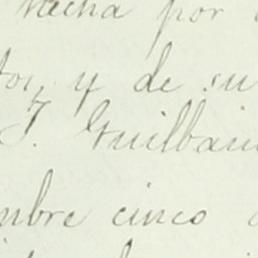 hecha por
y de su
J. Guilbau
mbre cinco